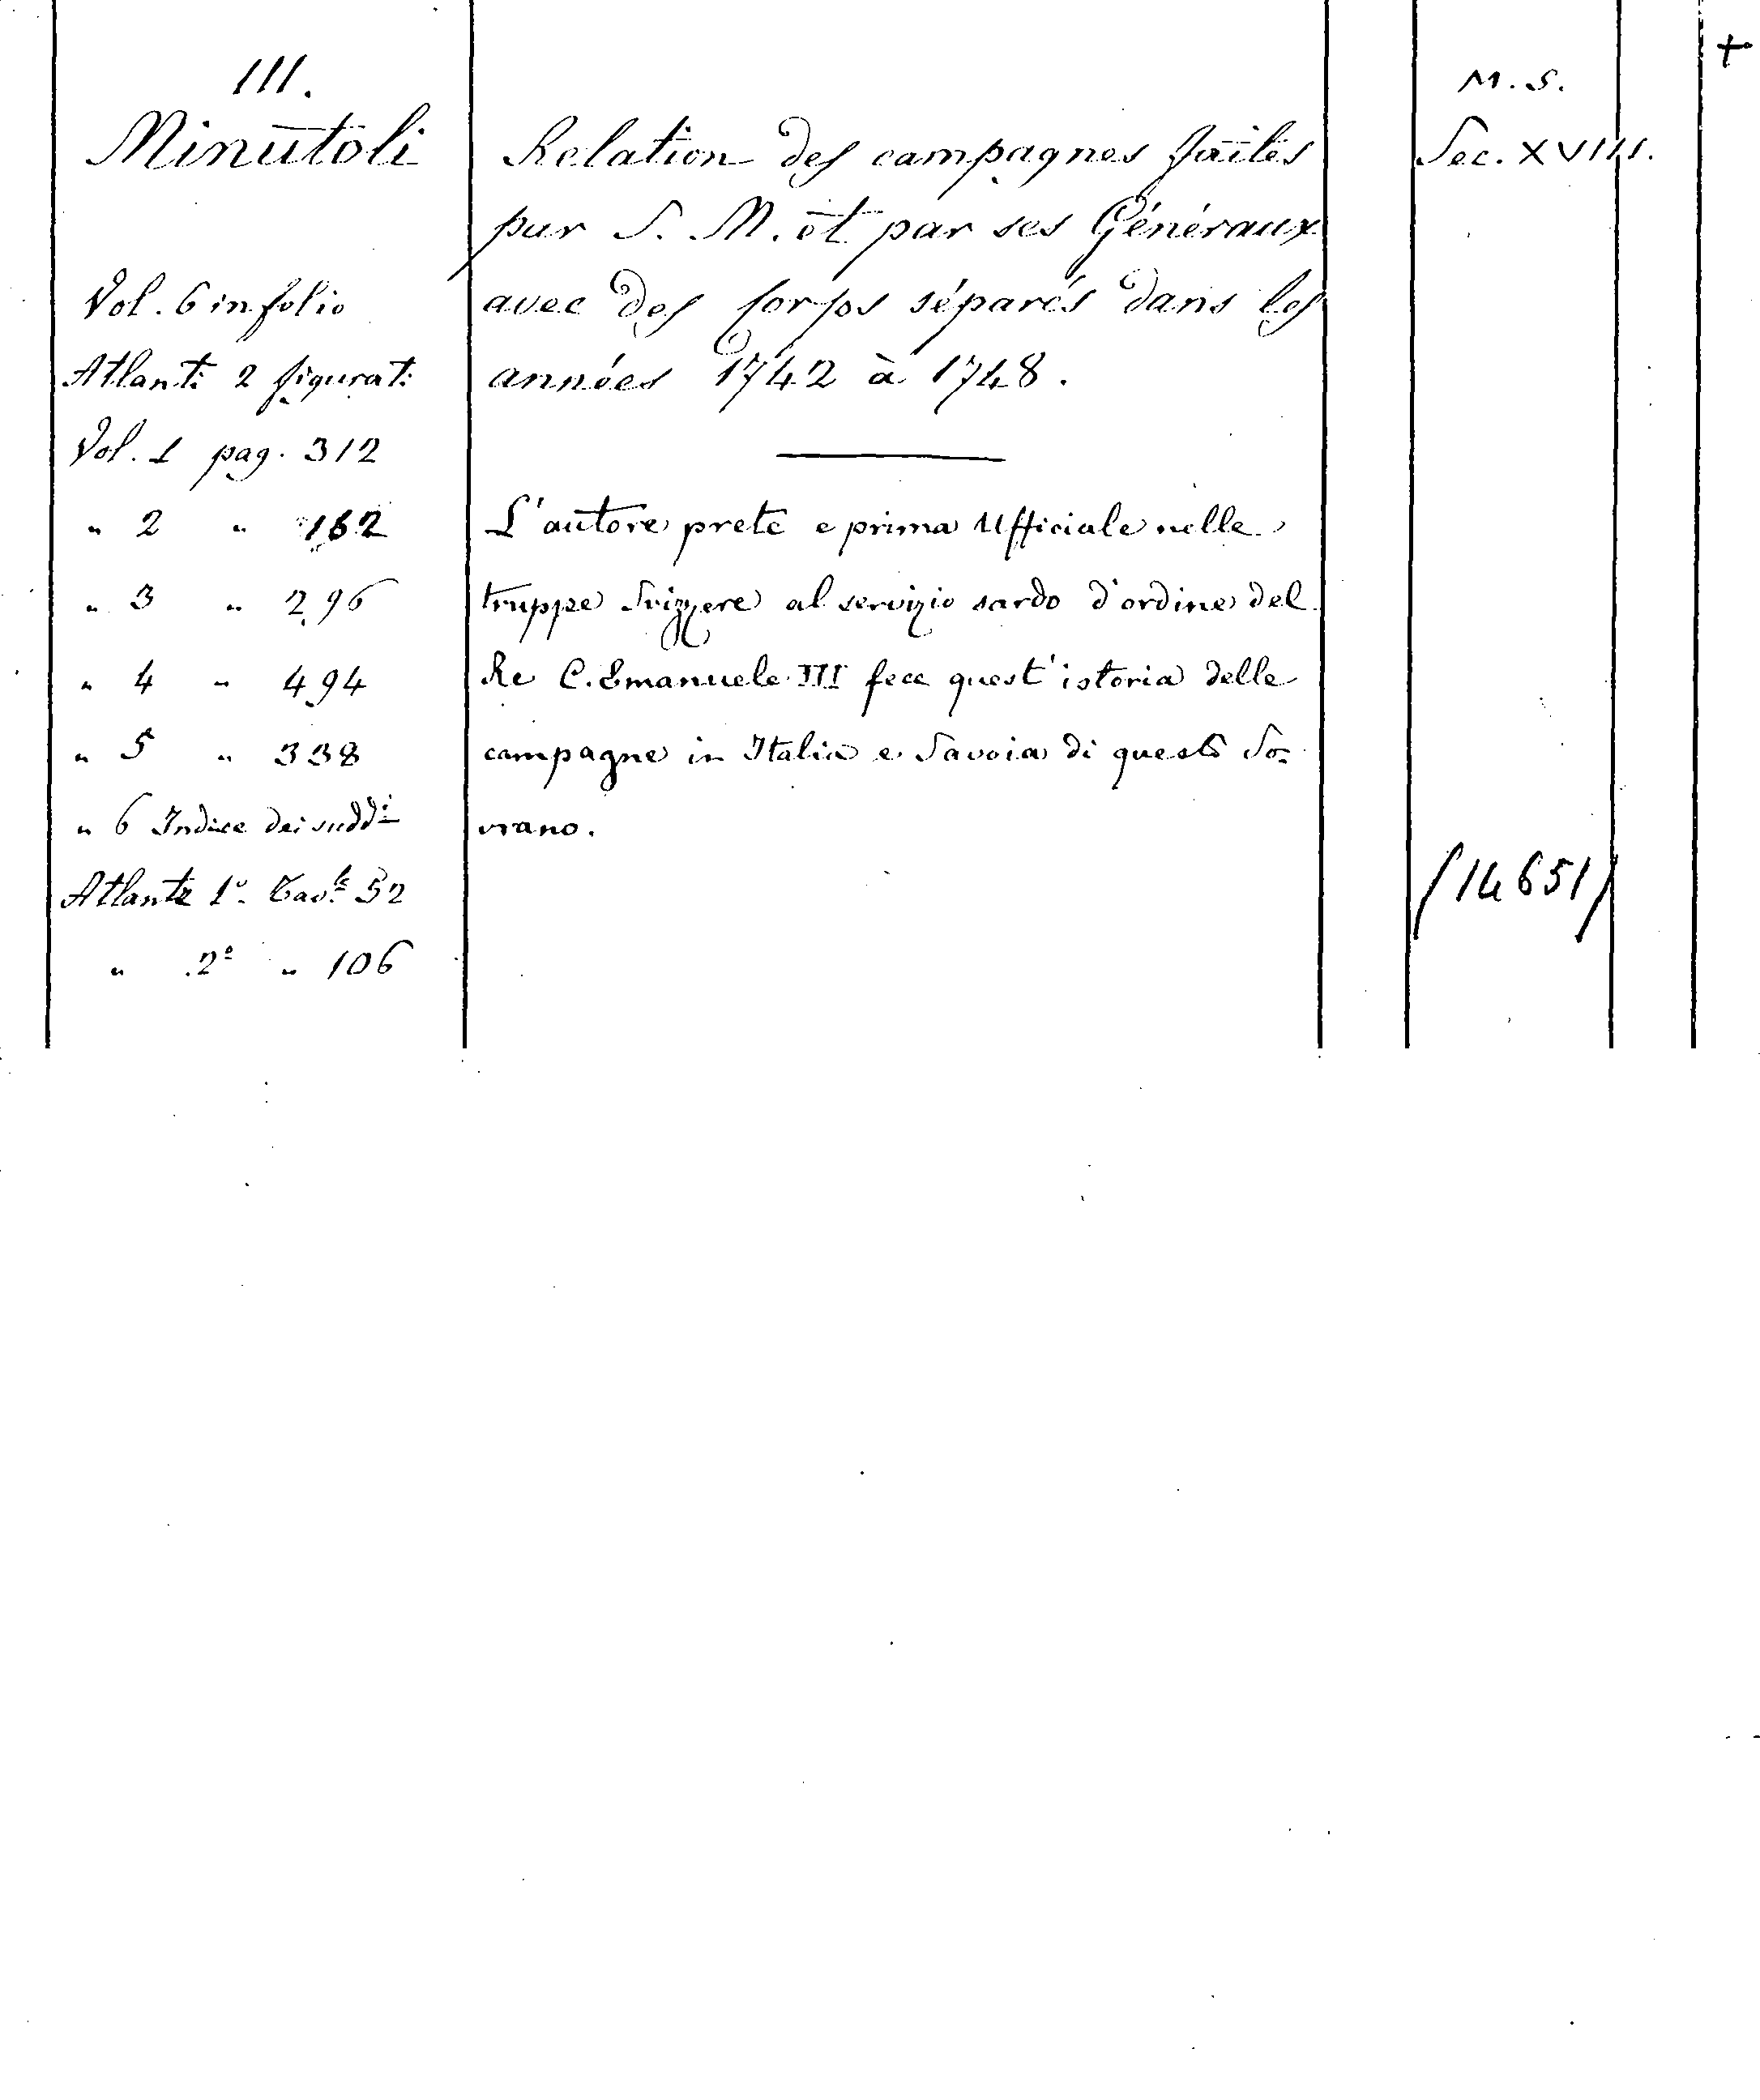 III.
Minutoli
Vol. 6 in folio
Atlanti 2 figurati
Vol. 1 pag. 312
" 2 " 162
" 3 " 296
" 4 " 494
" 5 " 338
" 6 Indice dei sudd.i
Atlante 1.º Tav.le 52
" 2.º " 106
Relation des campagnes faites
par S. M. et par ses Généraux
avec des corps séparés dans les
années 1742 à 1748.
L'autore prete e prima Ufficiale nelle
truppe Svizzere al servizio sardo d'ordine del
Re C. Emanuele III fece quest'istoria delle
campagne in Italia e Savoia di questo So=
vrano.
M. S.
Sec. XVIII.
(14651)
+